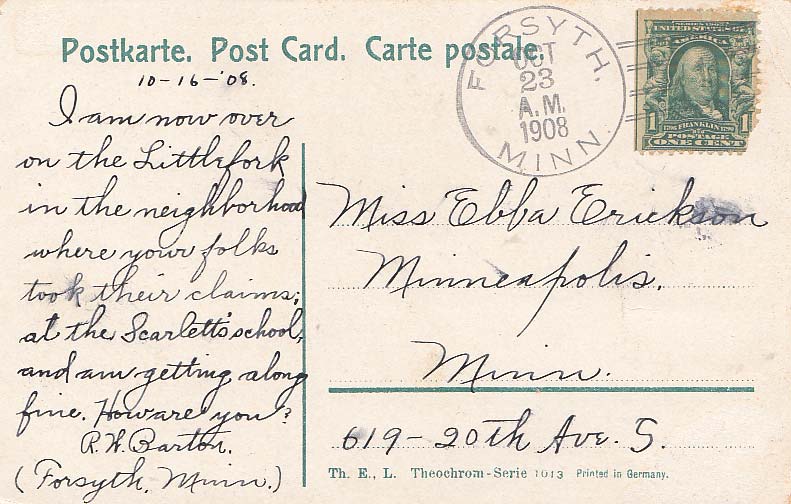 Postkarte. Post Card. Carte postale.
10-16-'08.
I am now over
on the Littlefork
in the neighborhood
where your folks
took their claims;
at the Scarlett's school,
and am getting along
fine. How are you?
R. W. Barton.
(Forsyth, Minn.)
FORSYTH,
OCT
23
A.M.
1908
MINN.
SERIES 1902
UNITED STATES OF
AMERICA
1706 FRANKLIN 1790
1 POSTAGE 1
ONE CENT
Miss Ebba Erickson
Minneapolis.
Minn.
619-20th Ave. S.
Th. E., L. Theochrom-Serie 1013 Printed in Germany.